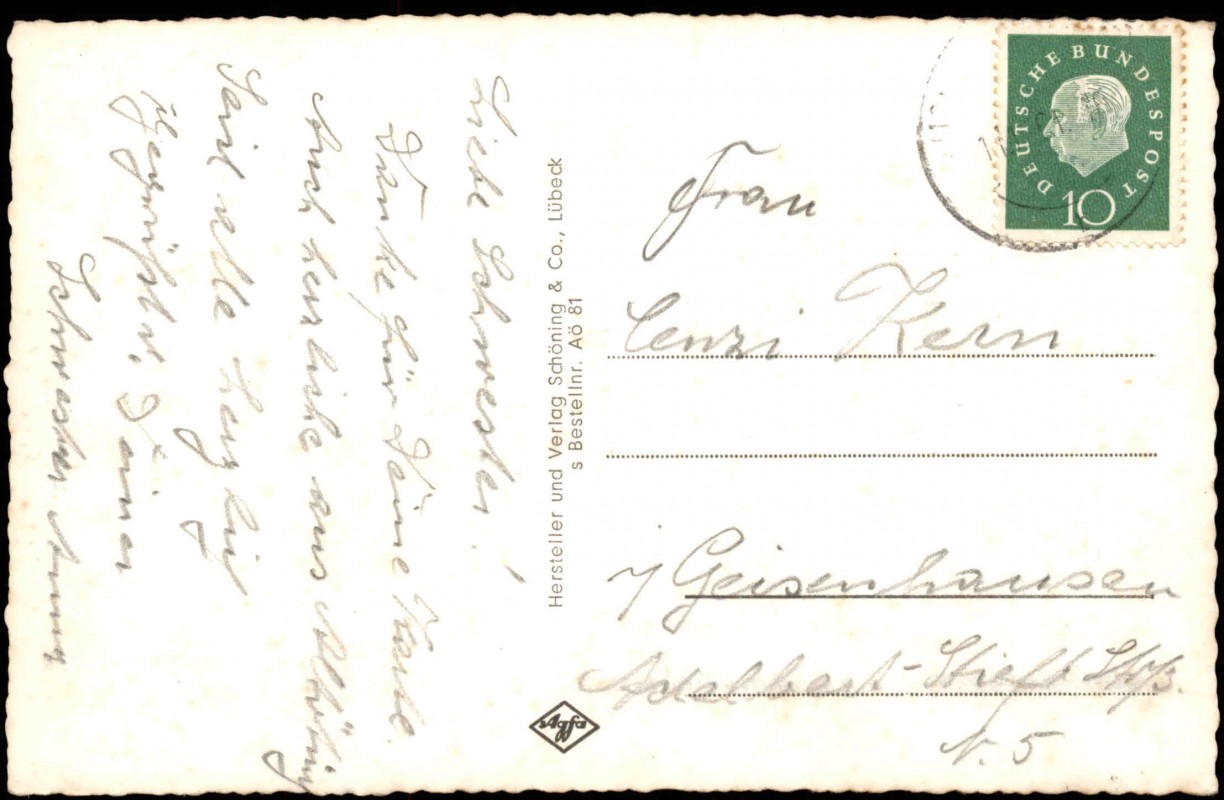 Liebe Schwester!
Danke für Deine Karte.
Auch herzliche aus Altötting
Seit alle herzlich
gegrüßt v. Deiner
Schwester Anna
Hersteller und Verlag Schöning & Co., Lübeck
s Bestellnr. Aö 81
Agfa
DEUTSCHE BUNDESPOST
10
Frau
Cenzi Kern
Geisenhausen
Adalbert-Stift Str.
N. 5